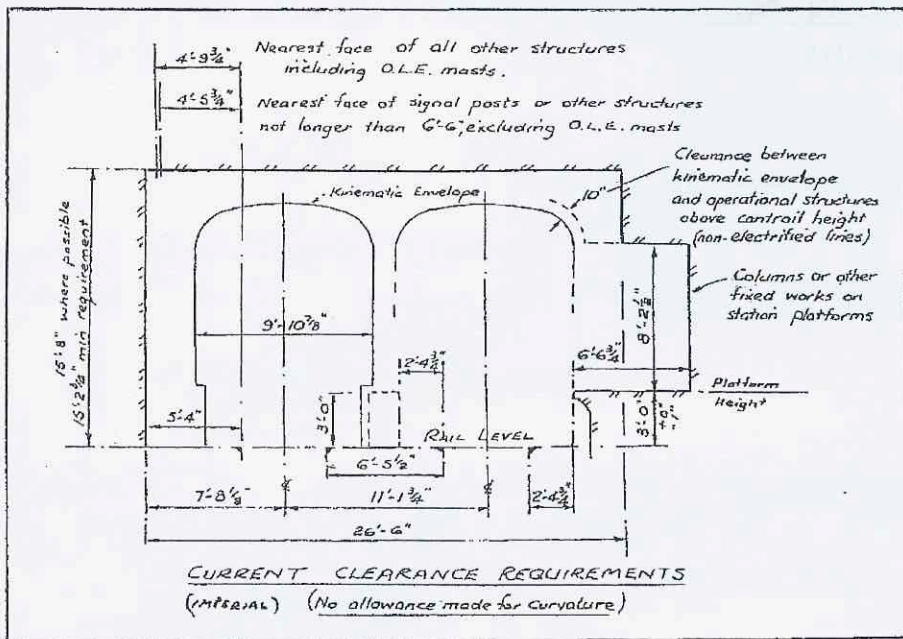 4'-9¾"
Nearest face of all other structures
including O.L.E. masts.
4'-5¾"
Nearest face of signal posts or other structures
not longer than 6'-6", excluding O.L.E. masts
Clearance between
kinematic envelope
and operational structures
above cantrail height
(non-electrified lines)
Kinematic Envelope
10"
15'-8" where possible
15'2¾" min requirement
Columns or other
fixed works on
station platforms
9'-10⅞"
8'-2½"
2'-4¾"
6'-6¾"
Platform
Height
3'-0"
8'-0"
5'-4"
RAIL LEVEL
6'-5½"
7'-8⅛"
11'-1¾"
2'-4¾"
26'-6"
CURRENT CLEARANCE REQUIREMENTS
(IMPERIAL) (No allowance made for curvature)